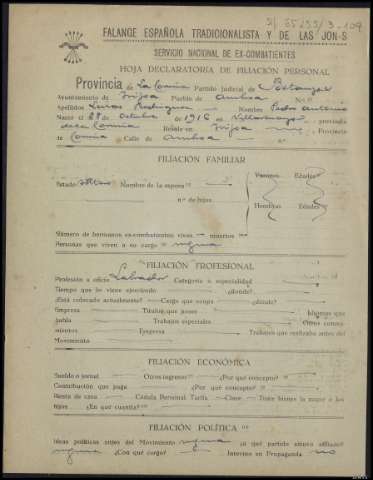 FALANGE ESPAÑOLA TRADICIONALISTA Y DE LAS JON-S
SERVICIO NACIONAL DE EX-COMBATIENTES
HOJA DECLARATORIA DE FILIACIÓN PERSONAL
Provincia de La Coruña Partido Judicial de
Ayuntamiento de Pueblo de N.º
Apellidos Rodriguez Nombre Pedro Antonio
Nació el 28 de Octubre de 1916 en provincia
de la Coruña Reside en Provincia
de Coruña Calle de
FILIACIÓN FAMILIAR
Estado soltero Nombre de la esposa
n.º de hijos
Varones Edades
Hembras Edades
Número de hermanos ex-combatientes vivos muertos
Personas que viven a su cargo
FILIACIÓN PROFESIONAL
Profesión u oficio Labrador Categoría o especialidad
Tiempo que lo viene ejerciendo ¿dónde?
¿Está colocado actualmente? Cargo que ocupa ¿dónde?
Empresa Títulos que posee Idiomas que
habla Trabajos especiales Otros conoci-
mientos Empresa Trabajos que realizaba antes del
Movimiento
FILIACIÓN ECONÓMICA
Sueldo o jornal Otros ingresos ¿Por qué concepto?
Contribución que paga ¿Por qué concepto?
Renta de casa Cédula Personal Tarifa Clase Tiene bienes la mujer o los
hijos ¿En qué cuantía?
FILIACIÓN POLÍTICA
Ideas políticas antes del Movimiento a qué partido estuvo afiliado
¿Con qué cargo? Intervino en Propaganda no